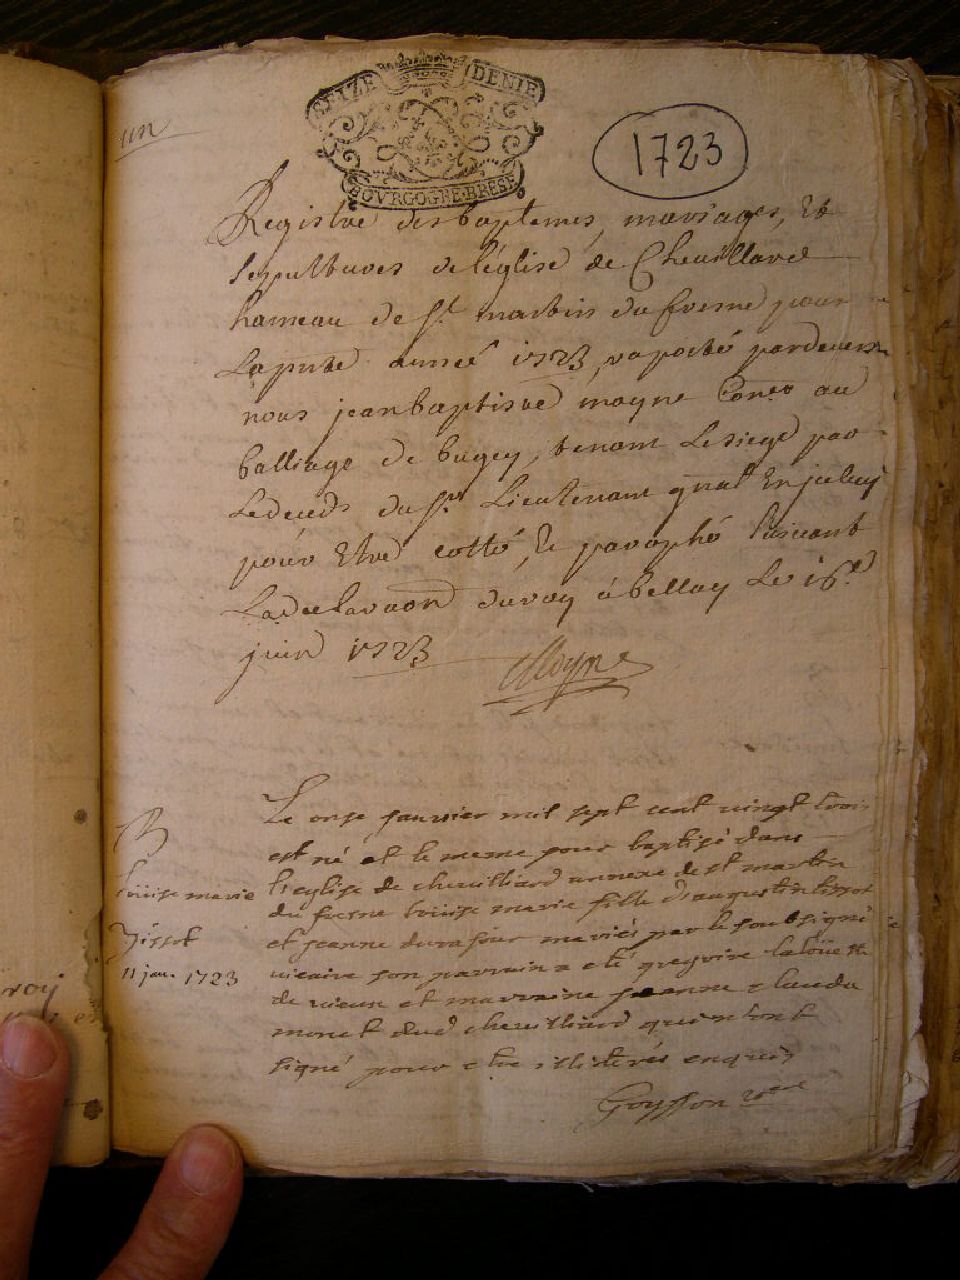 un
SEIZE DENIE
BOVRGOGNE·BRESE
1723
Registre des baptemes, mariages, et
sepultures de l'église de Cheuillard
hameau de St. martin du fresne pour
La pnte année 1723, raporté pardeuers
nous jean baptiste moyne Coner au
balliage de bugey, tenant Le siege par
Le deceds du Sr. Lieutenant gnal Enjceluy
pour Etre cotté, et paraphé suiuant
La declaraon du roy à belley Le 16e.
juin 1723
Moyne
Le onze januier mil sept cent vingt trois
est né et le meme jour baptisé dans
l'eglise de cheuilliard annexe de st martin
du fresne loüise marie fille d'augustin tissot
et jeanne durafour mariés par le soubsigné
uicaire son parrain a eté gregoire
de uieux et marraine jeanne clauda
monet dud cheuilliard qui n'ont
signé pour etre illiterés enquis
Goysson vire
B
Loüise marie
Tissot
11 jan. 1723
roy